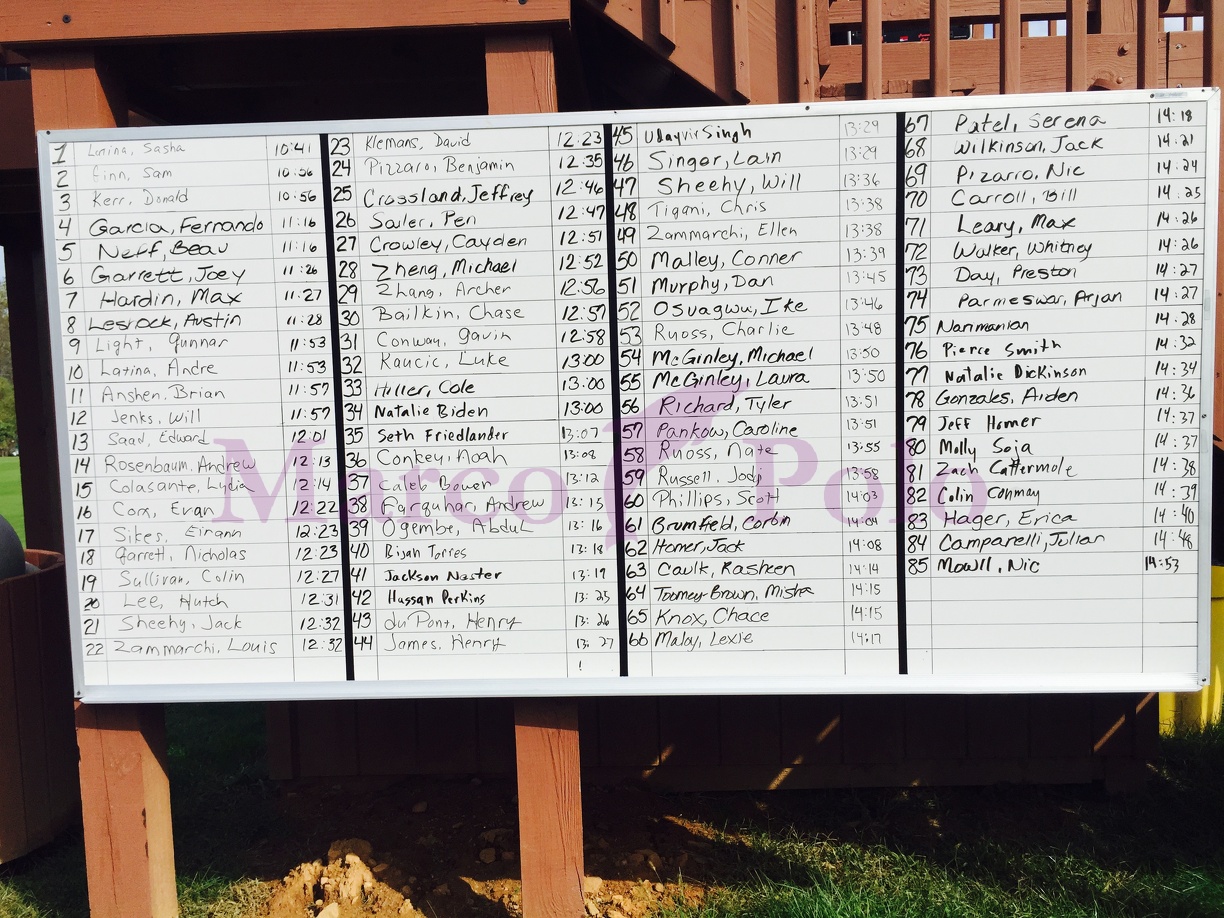 1 Latina, Sasha 10:41
2 Finn, Sam 10:56
3 Kerr, Donald 10:56
4 Garcia, Fernando 11:16
5 Neff, Beau 11:16
6 Garrett, Joey 11:26
7 Hardin, Max 11:27
8 Lesrock, Austin 11:28
9 Light, Gunnar 11:53
10 Latina, Andre 11:53
11 Anshen, Brian 11:57
12 Jenks, Will 11:57
13 Saad, Edward 12:01
14 Rosenbaum, Andrew 12:13
15 Colasante, Lydia 12:14
16 Corn, Evan 12:22
17 Sikes, Eirann 12:23
18 Garrett, Nicholas 12:23
19 Sullivan, Colin 12:27
20 Lee, Hutch 12:31
21 Sheehy, Jack 12:32
22 Zammarchi, Louis 12:32
23 Klemans, David 12:23
24 Pizzaro, Benjamin 12:35
25 Crossland, Jeffrey 12:46
26 Sailer, Pen 12:47
27 Crowley, Cayden 12:51
28 Zheng, Michael 12:52
29 Zhang, Archer 12:56
30 Bailkin, Chase 12:57
31 Conway, Gavin 12:58
32 Kaucic, Luke 13:00
33 Hiller, Cole 13:00
34 Natalie Biden 13:00
35 Seth Friedlander 13:07
36 Conkey, Noah 13:08
37 Caleb Bower 13:12
38 Farquhar, Andrew 13:15
39 Ogembe, Abdul 13:16
40 Bijan Torres 13:18
41 Jackson Naster 13:19
42 Hassan Perkins 13:25
43 du Pont, Henry 13:26
44 James, Henry 13:27
45 Udayvir Singh 13:29
46 Singer, Lain 13:29
47 Sheehy, Will 13:36
48 Tigani, Chris 13:38
49 Zammarchi, Ellen 13:38
50 Malley, Conner 13:39
51 Murphy, Dan 13:45
52 Osuagwu, Ike 13:46
53 Ruoss, Charlie 13:48
54 McGinley, Michael 13:50
55 McGinley, Laura 13:50
56 Richard, Tyler 13:51
57 Pankow, Caroline 13:51
58 Ruoss, Nate 13:55
59 Russell, Jodi 13:58
60 Phillips, Scott 14:03
61 Brumfield, Corbin 14:04
62 Homer, Jack 14:08
63 Caulk, Rasheen 14:14
64 Toomey Brown, Misha 14:15
65 Knox, Chace 14:15
66 Maloy, Lexie 14:17
67 Patel, Serena 14:18
68 Wilkinson, Jack 14:21
69 Pizarro, Nic 14:24
70 Carroll, Bill 14:25
71 Leary, Max 14:26
72 Walker, Whitney 14:26
73 Day, Preston 14:27
74 Parmeswar, Arjan 14:27
75 Nanmanian 14:28
76 Pierce Smith 14:32
77 Natalie Dickinson 14:34
78 Gonzales, Aiden 14:36
79 Jeff Homer 14:37
80 Molly Soja 14:37
81 Zach Cattermole 14:38
82 Colin Conmay 14:39
83 Hager, Erica 14:40
84 Camparelli, Julian 14:48
85 Mowll, Nic 14:53
Marco Polo